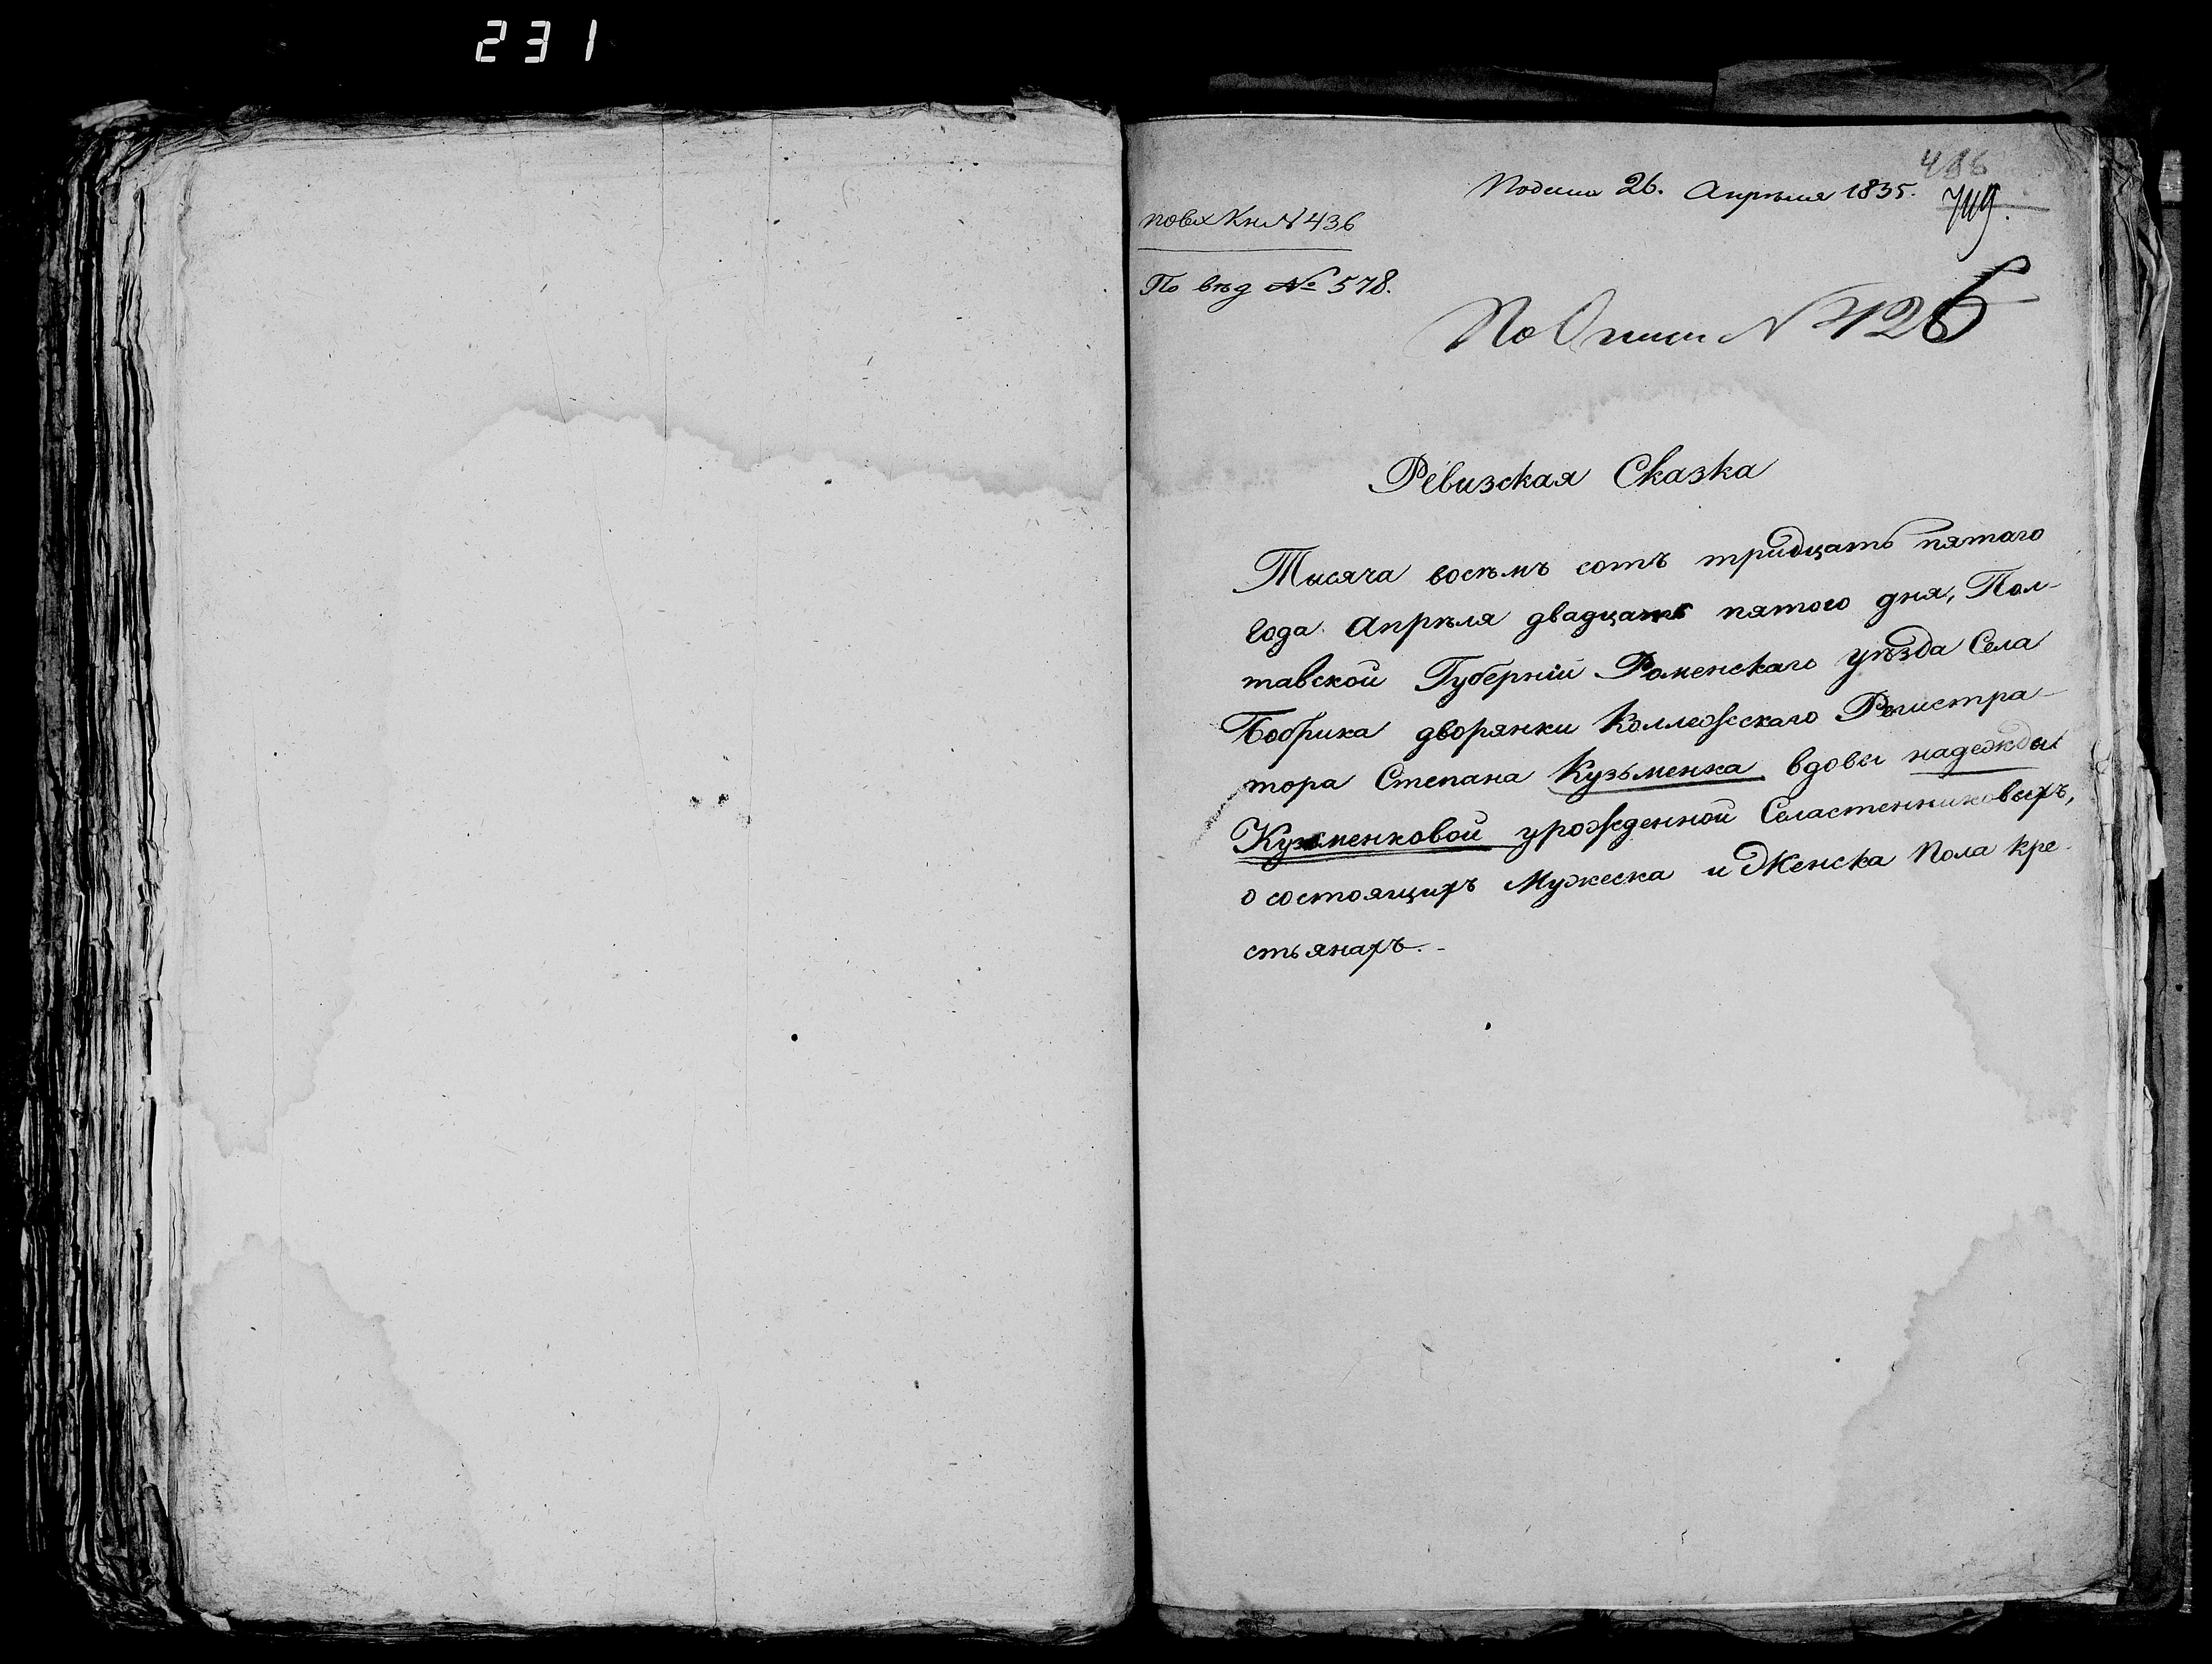 231
486
Подана 26. Апреля 1835.
719.
По вх Кн № 436
По вѣд № 578.
По Описи № 126
Ревизская Сказка
Тысяча восѣмъ сотъ тридцать пятаго
года Апрѣля двадцать пятого дня, Пол-
тавской Губерніи Роменскаго уѣзда Села
Бобрика дворянки Коллежскаго Регистра-
тора Степана Кузьменка вдовы надежды
Кузьменковой урожденной Селастенниковыхъ,
о состоящихъ Мужеска и Женска Пола кре-
стьянахъ.-